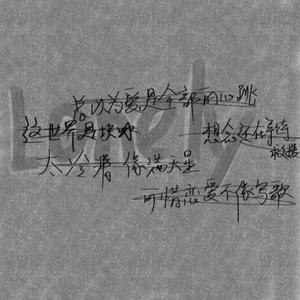 总以为爱是全部的心跳
这世界是块冰
想念还在等待
救援
太冷看像满天星
可惜恋爱不像写歌
Lonely